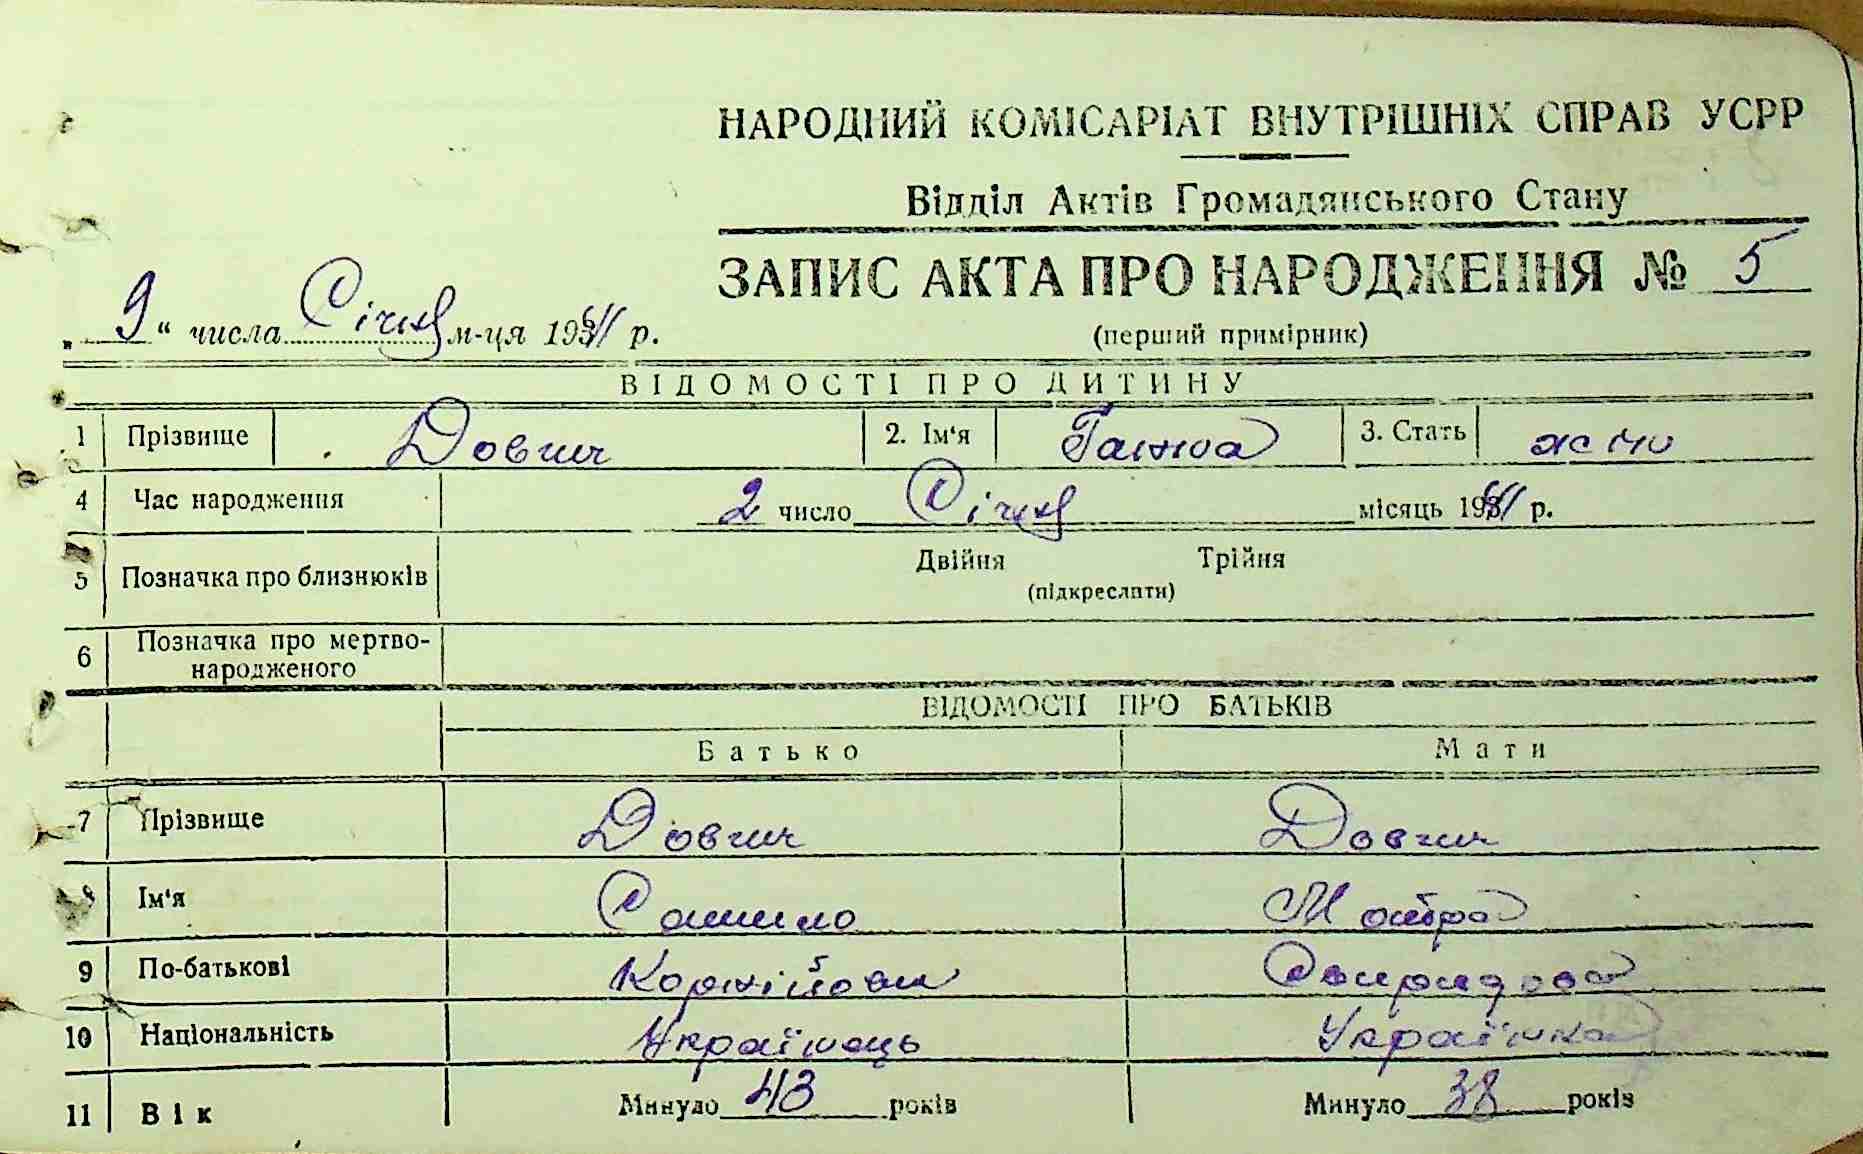 НАРОДНИЙ КОМІСАРІАТ ВНУТРІШНІХ СПРАВ УСРР
Відділ Актів Громадянського Стану
ЗАПИС АКТА ПРО НАРОДЖЕННЯ № 5
„ 9 “ числа Січня м-ця 1941 р.
(перший примірник)
ВІДОМОСТІ ПРО ДИТИНУ
1 Прізвище Довгич 2. Ім'я Ганна 3. Стать жіно
4 Час народження 2 число Січня місяць 1941 р.
5 Позначка про близнюків Двійня Трійня
(підкреслити)
6 Позначка про мертво-
народженого
ВІДОМОСТІ ПРО БАТЬКІВ
Батько Мати
7 Прізвище Довгич Довгич
8 Ім'я Самило
9 По-батькові Корнійови Свиридова
10 Національність Українець Українка
11 Вік Минуло 43 років Минуло 38 років